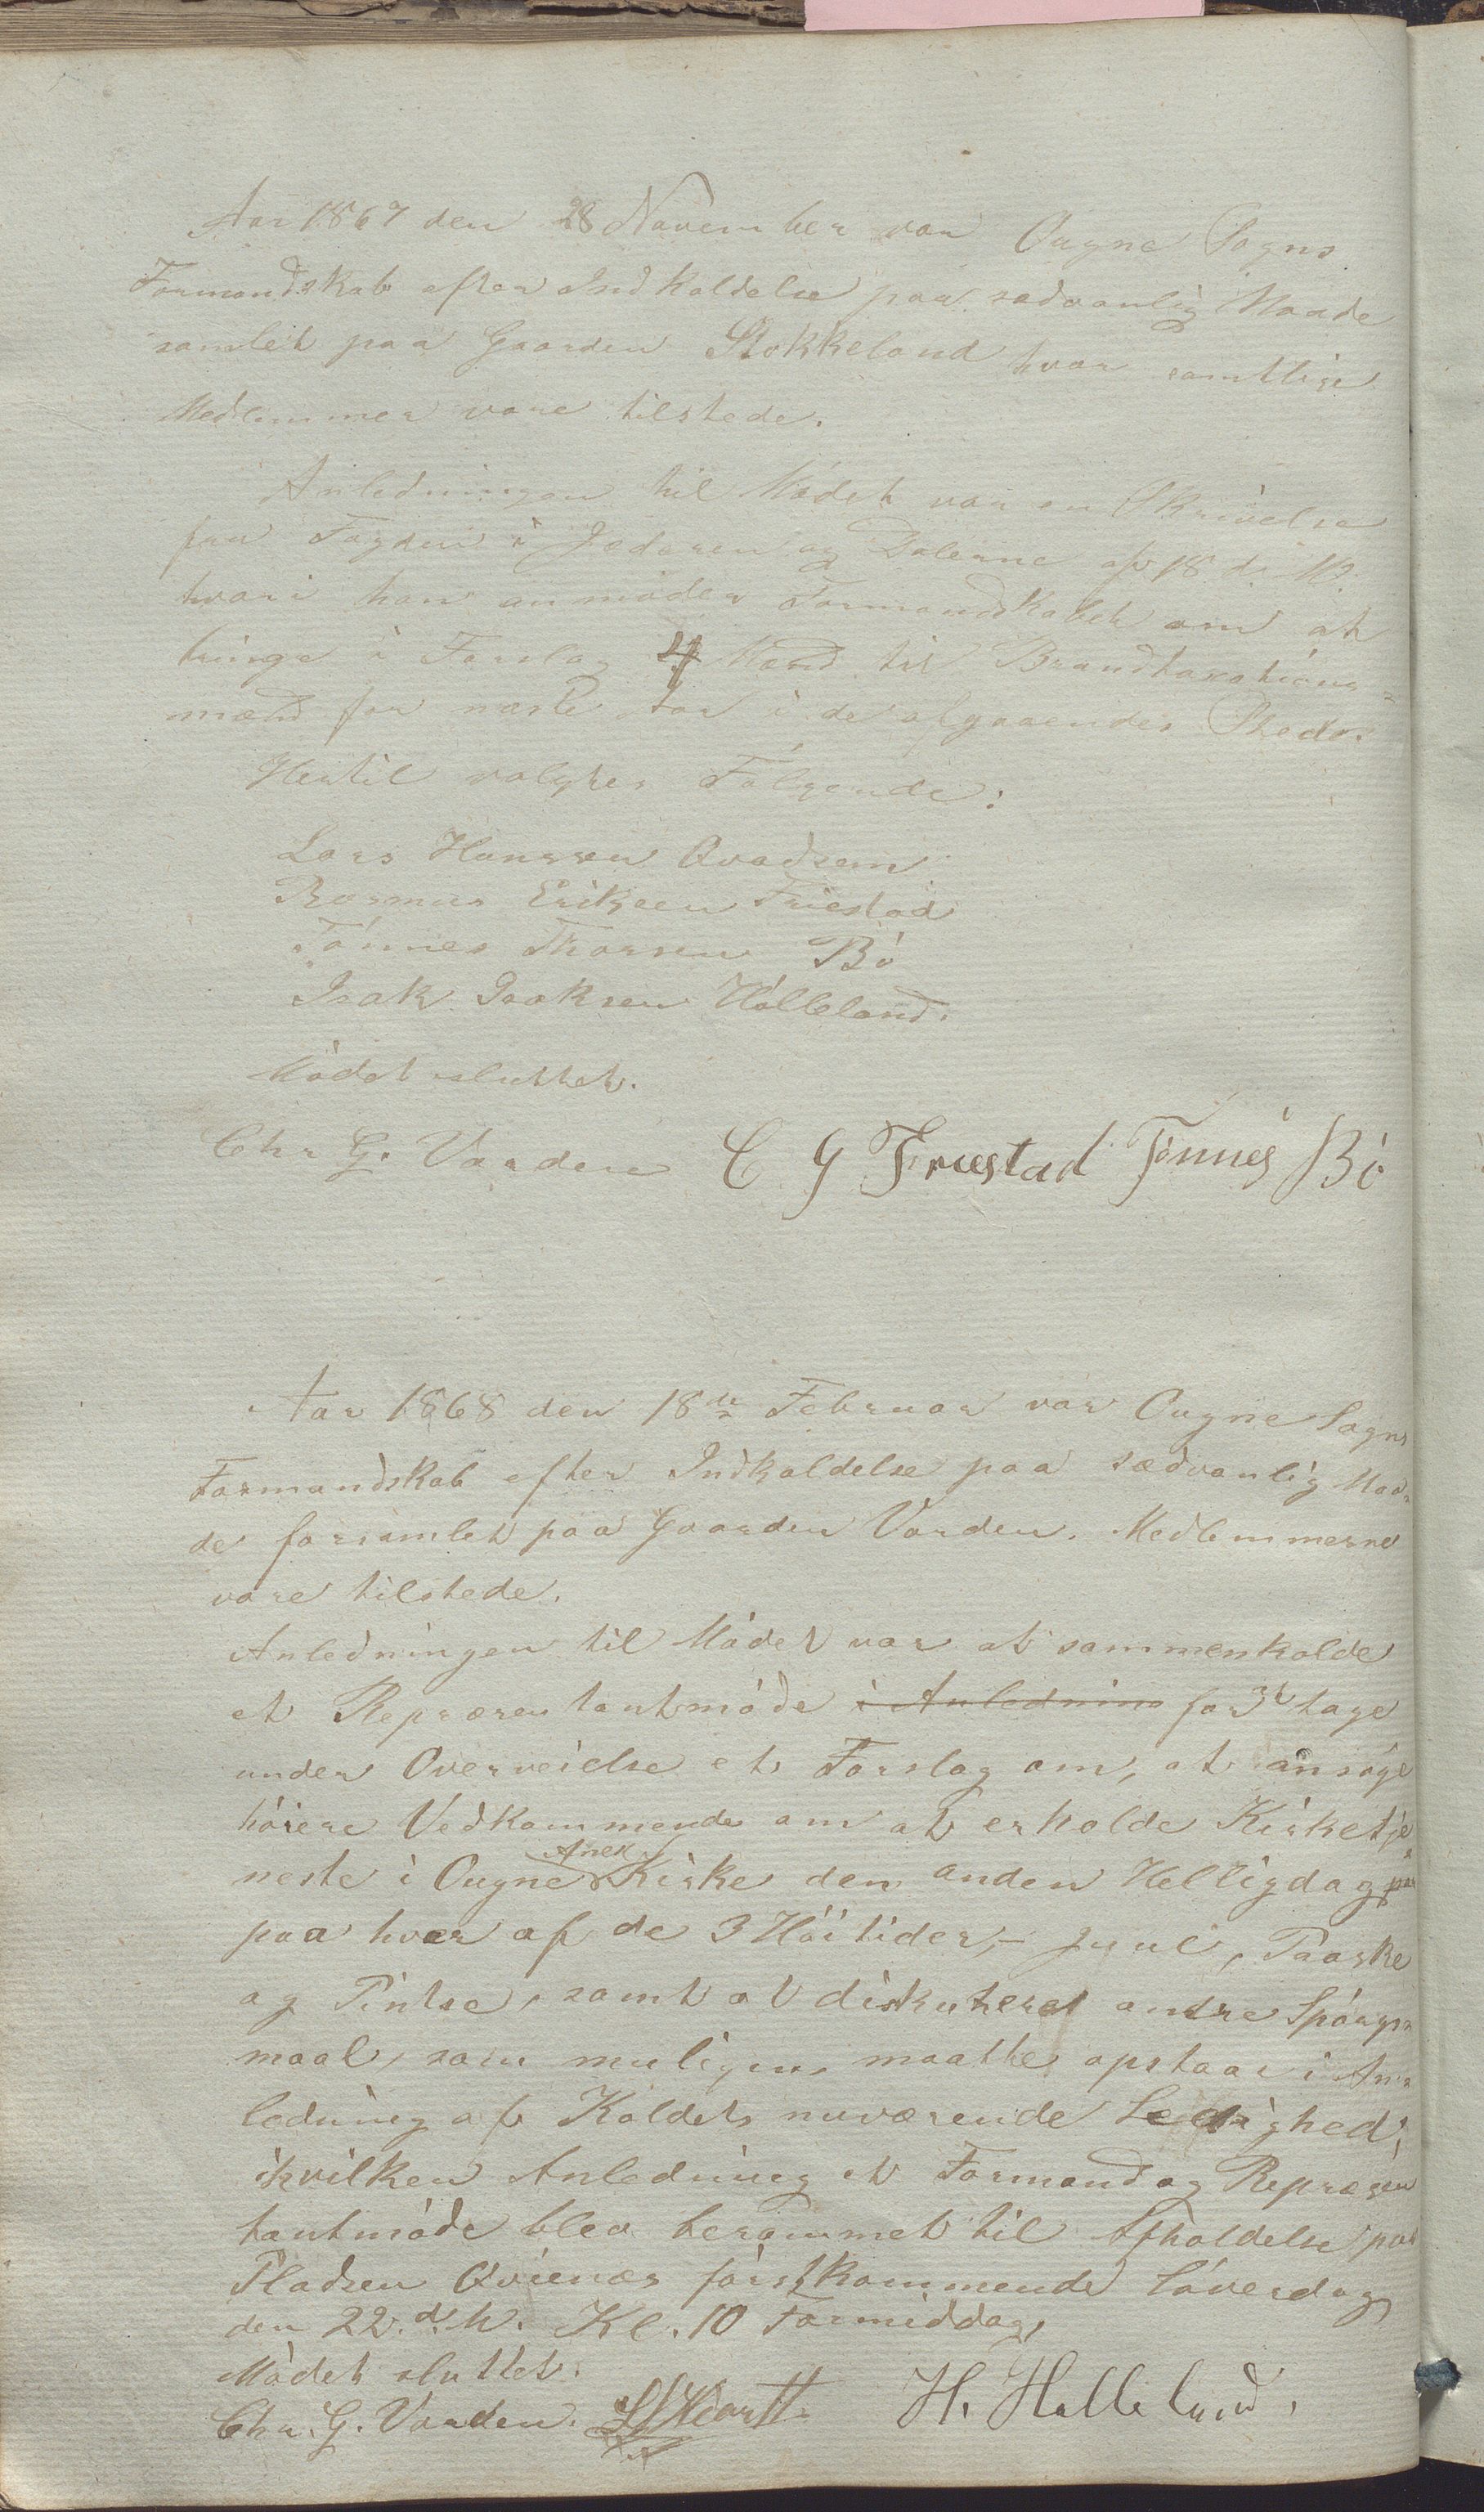 Aar 1867 den 28 November var Ougne Sogns
Formandskab efter Indkaldelse paa sædvanlig Maade
samlet paa Gaarden Stokkeland hvor samtlige
Medlemmer vare tilstede.
Anledningen til Mødet var en Skrivelse
fra Fogden i Jæderen og Dalerne af 18 d. M.
hvori han anmoder Formandskabet om at
bringe i Forslag 4 Mænd til Brandtaxations-
mænd for næste Aar i de afgaaendes Sted.
Hertil valgtes Følgende:
Lars Hanssen Qvadsem
Rasmus Eriksen Friestad
Tönnes Thorsen Bö
Isak Isaksen Hölleland.
Mödet sluttet.
Chr G. Varden C G Friestad Tönnes Bö
Aar 1868 den 18de Februar var Ougne Sogns
Formandskab efter Indkaldelse paa sædvanlig Maa-
de forsamlet paa Gaarden Varden. Medlemmerne
vare tilstede.
Anledningen til Mödet var at sammenkalde
et Repræsentantmöde i Anledning for at tage
under Overveielse et Forslag om, at ansöge
höiere Vedkommende om at erholde Kirketje-
neste i Ougne Anex Kirke den anden Helligdag
paa hver af de 3 Höitider,- Juul, Paaske
og Pintse, samt at diskutere andre Spörgs-
maal, som muligens maatte opstaa i An-
ledning af Kaldets nuværende Ledighed,
ihvilken Anledning et Formand og Repræsen
tantmöde blev berammet til Afholdelse paa
Pladsen Qvienæs förstkommende Löverdag
den 22. d. M. Kl. 10 Formiddag,
Mödet sluttet.
Chr. G. Varden. H. Hölleland.